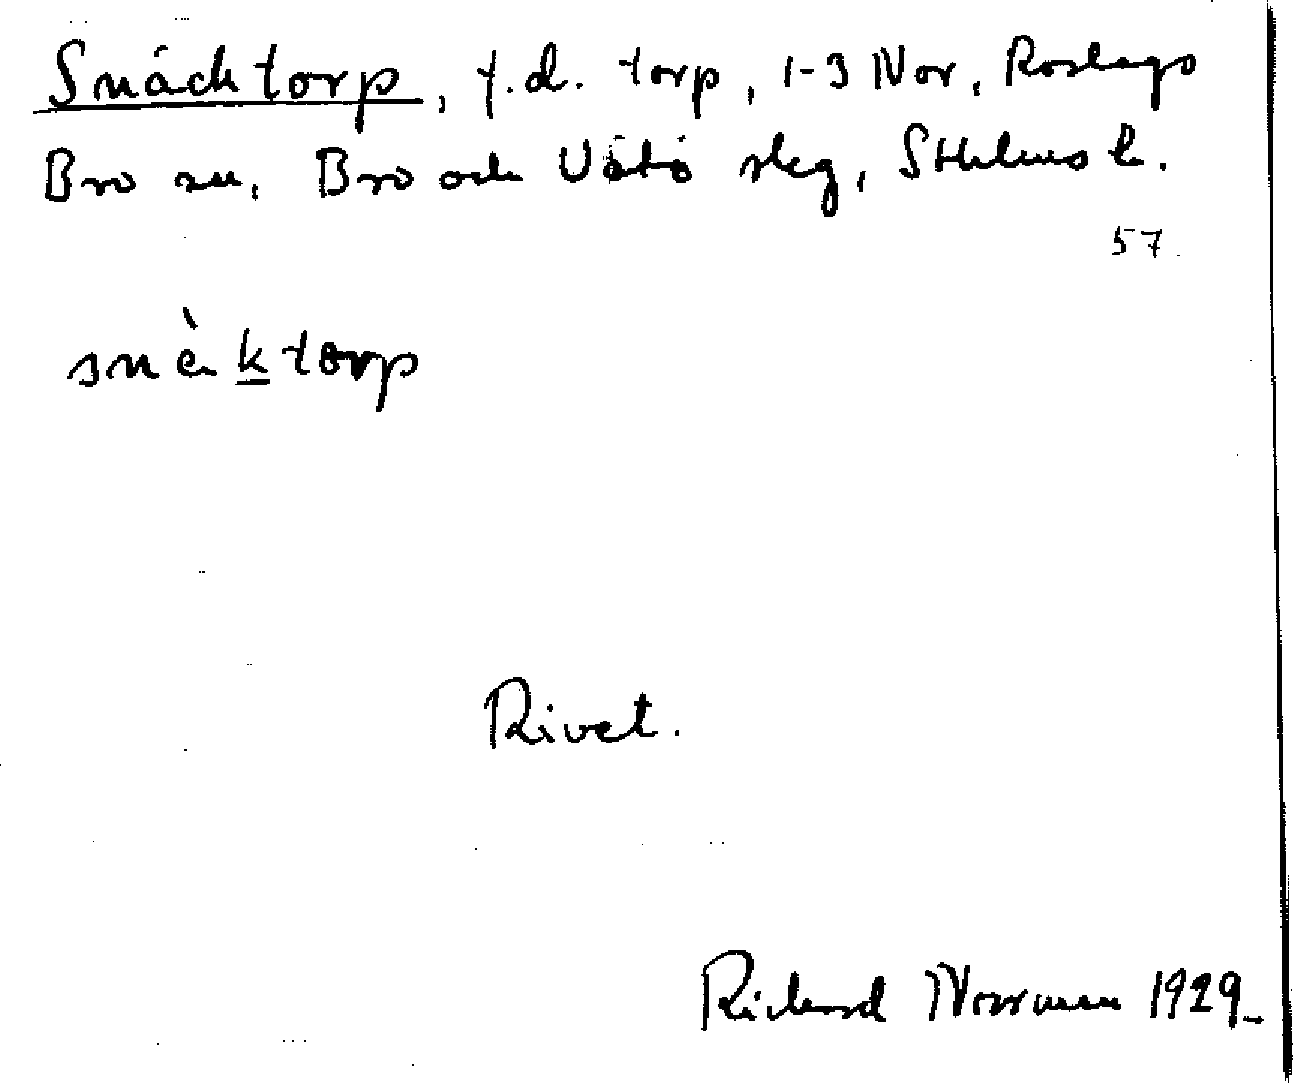 Snäcktorp, f.d. torp, 1-3 Nor, Roslags
Bro sn, Bro och Vätö skg, Sthlms l.
57.
snèktorp
Rivet.
Richard Norrman 1929